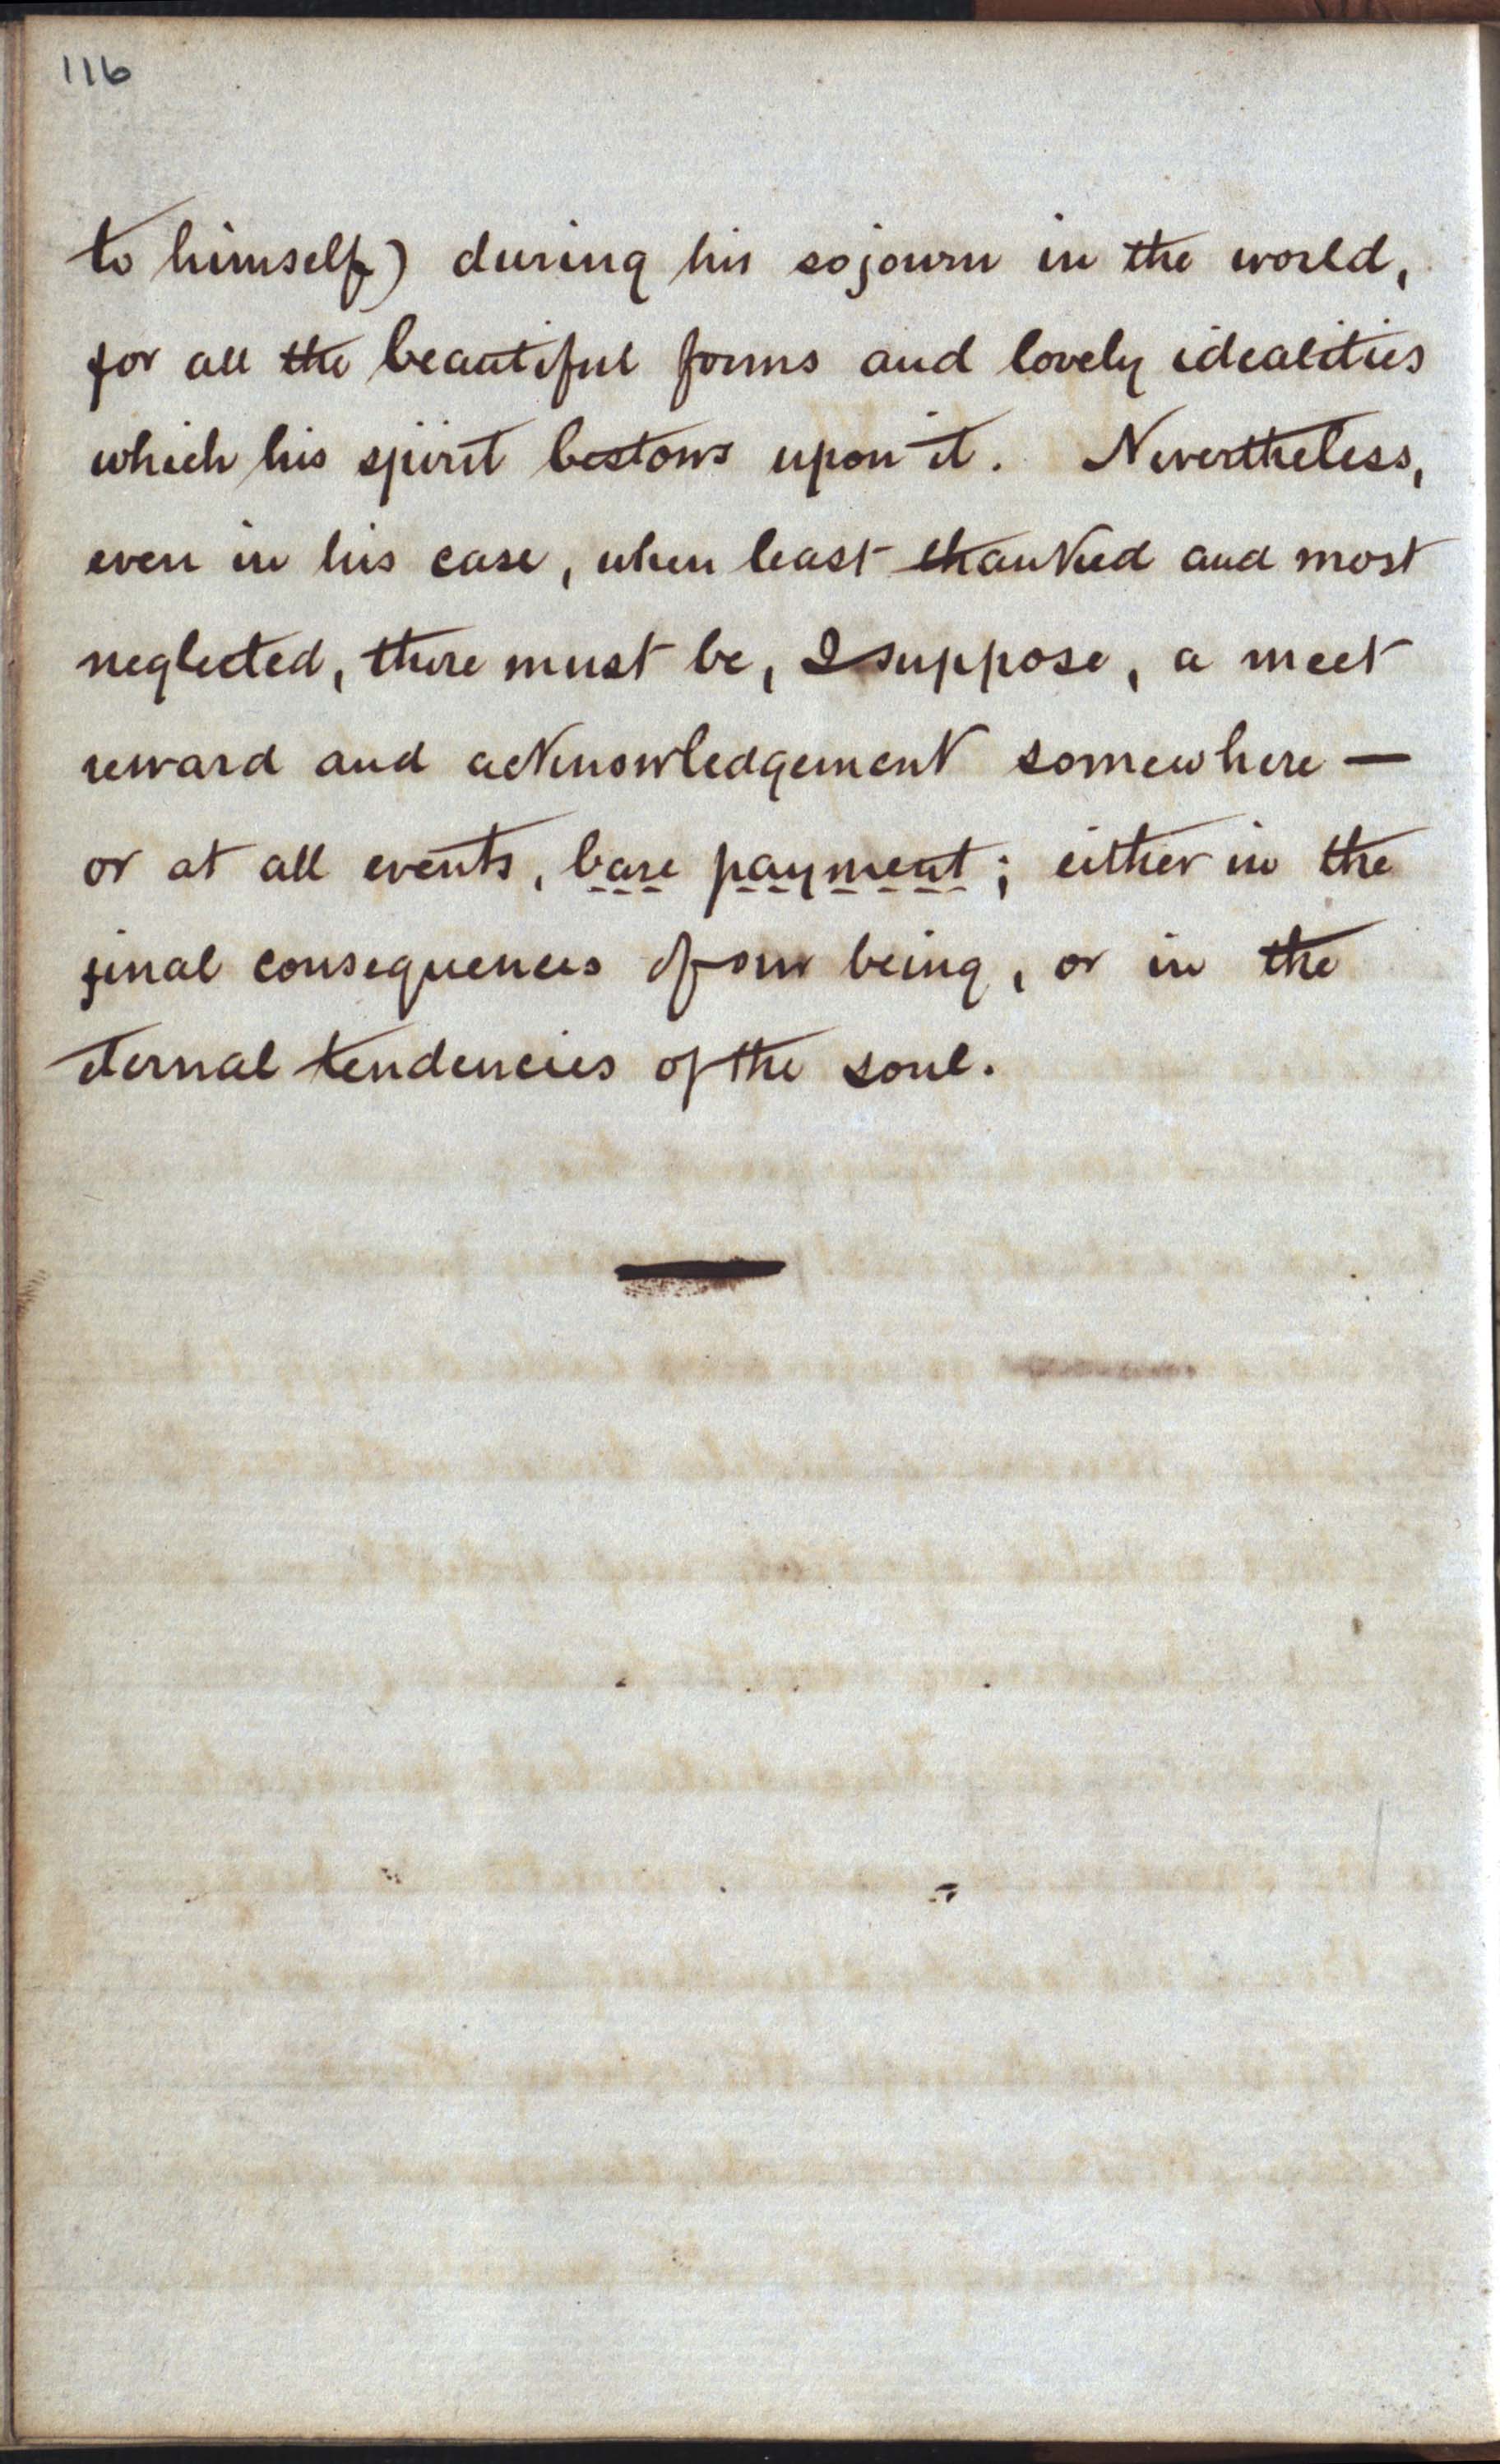 116
to himself) during his sojourn in the world,
for all the beautiful forms and lovely idealities
which his spirit bestows upon it. Nevertheless,
even in his case, when least thanked and most
neglected, there must be, I suppose, a meet
reward and acknowledgement somewhere —
or at all events, bare payment; either in the
final consequences of our being, or in the
eternal tendencies of the soul.